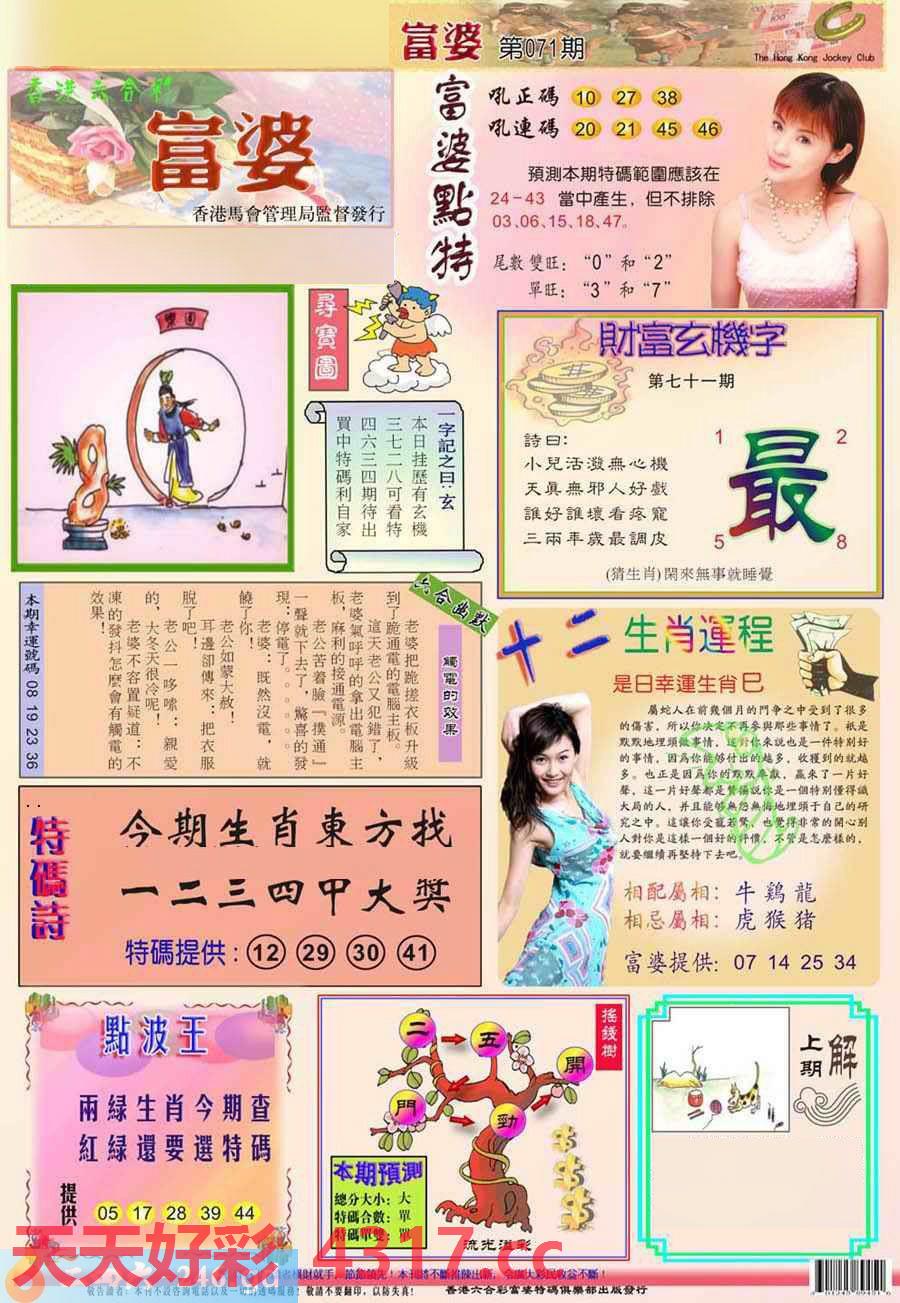 富婆 第071期
The Hong Kong Jockey Club
香港六合彩
富婆
香港馬會管理局監督發行
富婆點特
吼正碼 10 27 38
吼連碼 20 21 45 46
預測本期特碼範圍應該在
24-43 當中產生，但不排除
03、06、15、18、47。
尾數雙旺：“0”和“2”
單旺：“3”和“7”
樂園
尋寶圖
一字記之曰：玄
本日挂歷有玄機
三七二八可看特
四六三四期待出
買中特碼利自家
財富玄機字
第七十一期
詩曰：
小兒活潑無心機
天真無邪人好戲
誰好誰壞看疼寵
三兩年歲最調皮
1 2
最
5 8
(猜生肖)閑來無事就睡覺
六合幽默
觸電的效果
老婆把跪搓衣板升級
到了跪通電的電腦主板。
這天老公又犯錯了，
老婆氣呼呼的拿出電腦主
板，麻利的接通電源。
老公苦着臉『撲通』
一聲就下去了，驚喜的發
現：停電了。。。。。。
老婆：既然沒電，就
饒了你！
老公如蒙大赦！
耳邊卻傳來：把衣服
脫了吧！
老公一哆嗦：親愛
的，大冬天很冷呢！
老婆不容置疑道：不
凍的發抖怎麼會有觸電的
效果！
本期幸運號碼 08 19 23 36
十二生肖運程
是日幸運生肖巳
屬蛇人在前幾個月的鬥争之中受到了很多
的傷害，所以你决定不再參與那些事情了。衹是
默默地埋頭做事情，這對你來説也是一件特别好
的事情，因爲你能够付出的越多，收獲到的就越
多。也正是因爲你的默默奉獻，贏來了一片好
聲，這一片好聲都是贊揚説你是一個特别懂得識
大局的人，并且能够無怨無悔地埋頭于自己的研
究之中。這讓你受寵若驚，也覺得非常的開心别
人對你是這樣一個好的評價，不管是怎麼樣的，
就要繼續再堅持下去吧。
相配屬相：牛鷄龍
相忌屬相：虎猴猪
富婆提供：07 14 25 34
特碼詩
今期生肖東方找
一二三四中大獎
特碼提供：12 29 30 41
點波王
兩緑生肖今期查
紅緑還要選特碼
提供 05 17 28 39 44
摇錢樹
二 五 開
門 勁
本期預測
總分大小：大
特碼合數：單
特碼單雙：單
流光溢彩
上期解
天天好彩 4317.cc
香港六合彩富婆特碼俱樂部出版發行